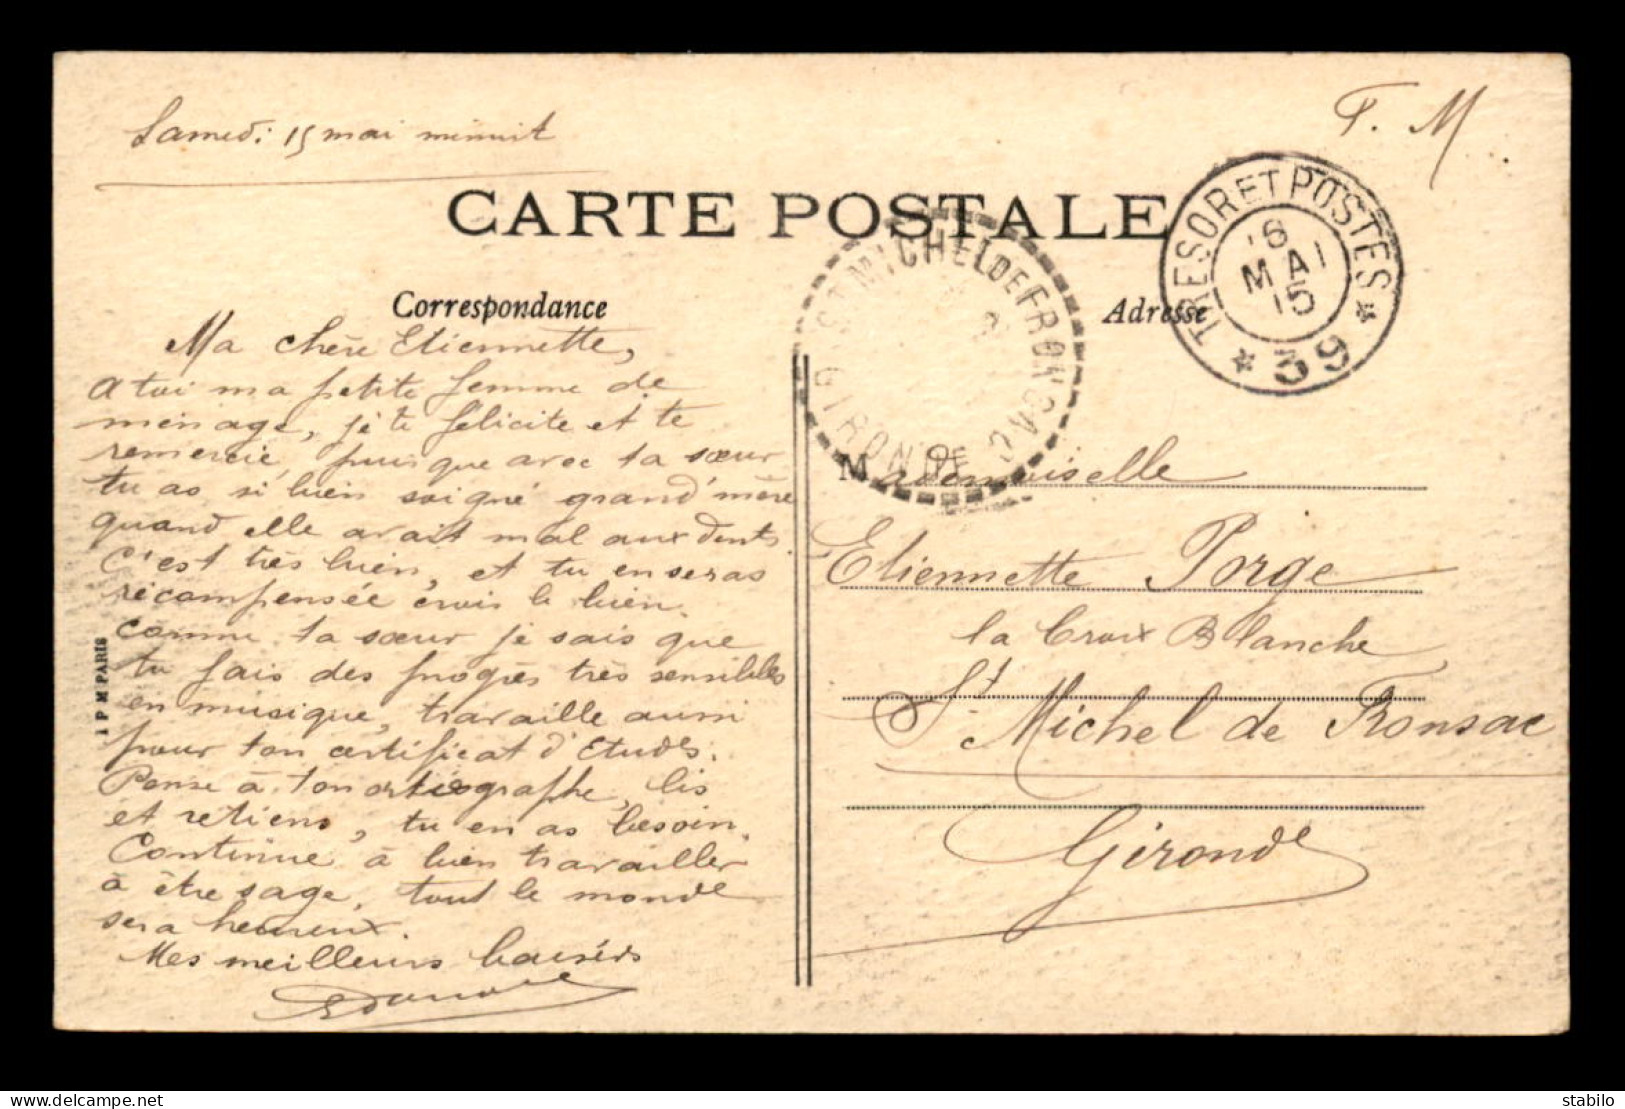 Samedi 15 mai minuit
F. M.
CARTE POSTALE
TRESOR ET POSTES
*6
MAI
15
* 39 *
ST MICHEL DE FRONSAC
GIRONDE
Correspondance
Adresse
Ma chère Etiennette,
A toi ma petite femme de
ménage, je te félicite et te
remercie, puisque avec ta sœur
tu as si bien soigné grand'mère
quand elle avait mal aux dents.
C'est très bien, et tu en seras
récompensée crois le bien.
Comme ta sœur je sais que
tu fais des progrès très sensibles
en musique, travaille aussi
pour ton certificat d'Etudes.
Pense à ton ortographe, lis
et retiens, tu en as besoin.
Continue à bien travailler
à être sage, tout le monde
sera heureux.
Mes meilleurs baisers
Mademoiselle
Etiennette Porge
la Croix Blanche
St Michel de Fronsac
Gironde
I P M PARIS
delcampe.net
stabilo